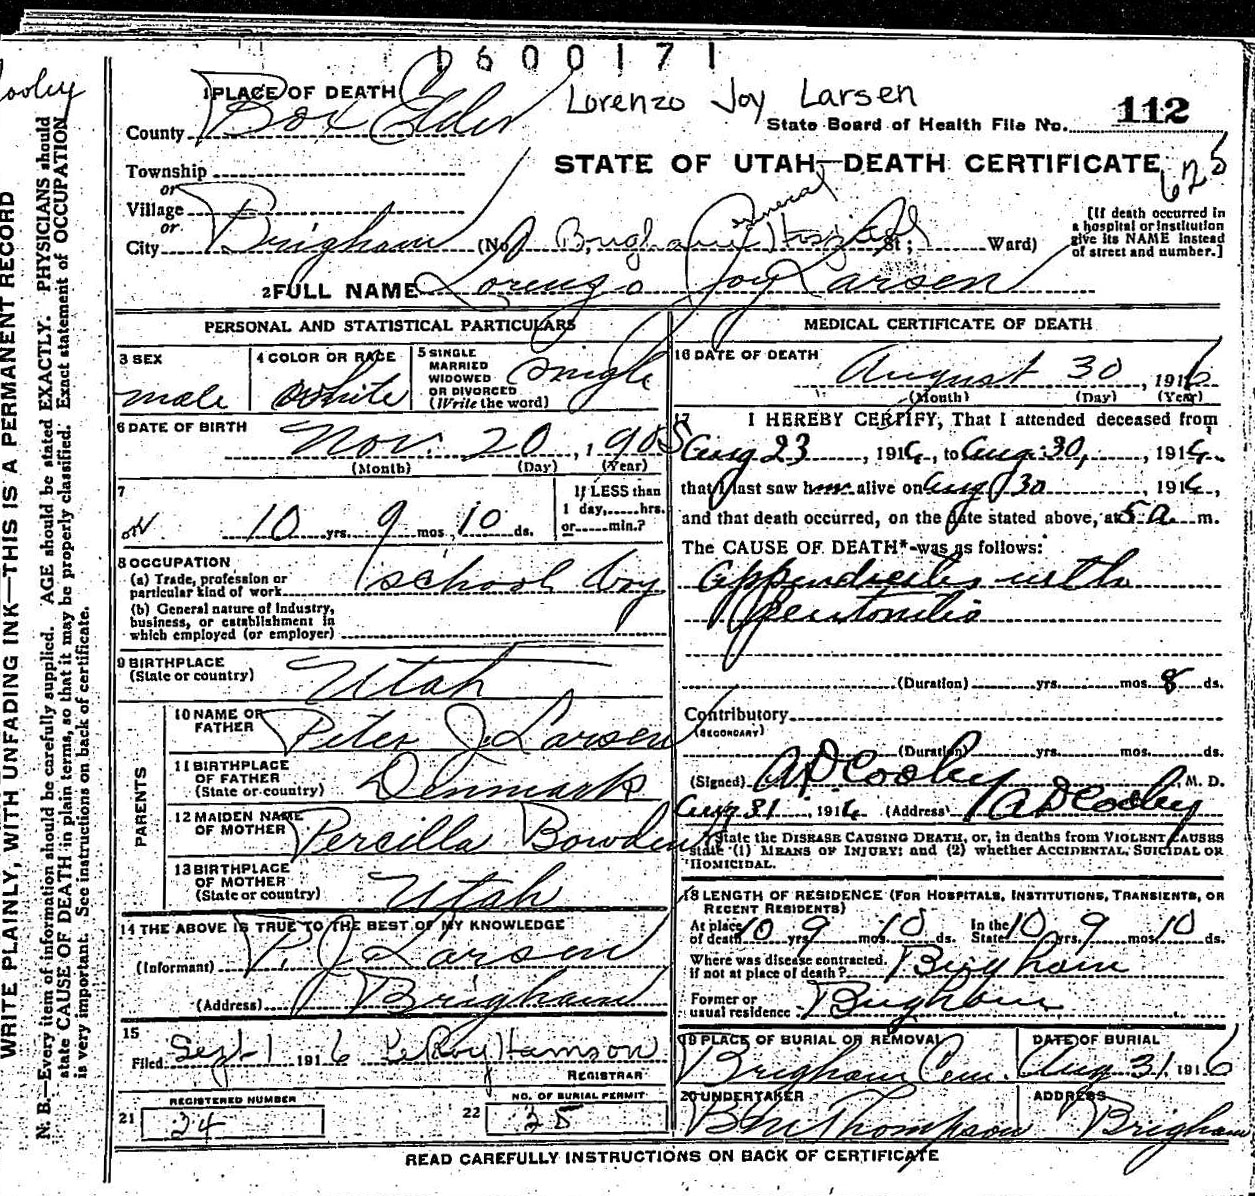 1600171
Cooley
Lorenzo Joy Larsen
1 PLACE OF DEATH
County Box Elder
State Board of Health File No. 112
STATE OF UTAH—DEATH CERTIFICATE
625
Township
or
Village
or
City Brigham (No. Brigham General Hospital St; Ward)
[If death occurred in
a hospital or institution
give its NAME instead
of street and number.]
2 FULL NAME Lorenzo Joy Larsen
PERSONAL AND STATISTICAL PARTICULARS
3 SEX
male
4 COLOR OR RACE
white
5 SINGLE
MARRIED
WIDOWED
OR DIVORCED
(Write the word)
single
6 DATE OF BIRTH
Nov. 20, 1905
(Month) (Day) (Year)
7
10 yrs. 9 mos. 10 ds.
If LESS than
1 day, hrs.
or min.?
8 OCCUPATION
(a) Trade, profession or
particular kind of work school boy
(b) General nature of industry,
business, or establishment in
which employed (or employer)
9 BIRTHPLACE
(State or country) Utah
PARENTS
10 NAME OF
FATHER Peter J Larsen
11 BIRTHPLACE
OF FATHER
(State or country) Denmark
12 MAIDEN NAME
OF MOTHER Percilla Bowden
13 BIRTHPLACE
OF MOTHER
(State or country) Utah
14 THE ABOVE IS TRUE TO THE BEST OF MY KNOWLEDGE
(Informant) P. J. Larsen
(Address) Brigham
15
Filed Sept 1 1916 LeRoy Hamson
REGISTRAR
REGISTERED NUMBER
21 34
NO. OF BURIAL PERMIT
22 35
MEDICAL CERTIFICATE OF DEATH
16 DATE OF DEATH
August 30, 1916
(Month) (Day) (Year)
17 I HEREBY CERTIFY, That I attended deceased from
Aug 23, 1916, to Aug. 30, 1916.
that I last saw him alive on Aug 30 1916,
and that death occurred, on the date stated above, at 5 a m.
The CAUSE OF DEATH* was as follows:
appendicites with
peritonitis
(Duration) yrs. mos. 8 ds.
Contributory
(SECONDARY)
(Duration) yrs. mos. ds.
(Signed) AD Cooley, M. D.
Aug 31, 1916 (Address) AD Cooley
*State the DISEASE CAUSING DEATH, or, in deaths from VIOLENT CAUSES
state (1) MEANS OF INJURY; and (2) whether ACCIDENTAL, SUICIDAL OR
HOMICIDAL.
18 LENGTH OF RESIDENCE (FOR HOSPITALS, INSTITUTIONS, TRANSIENTS, OR
RECENT RESIDENTS)
At place
of death 10 yrs. 9 mos. 10 ds. In the
State 10 yrs. 9 mos. 10 ds.
Where was disease contracted.
if not at place of death? Brigham
Former or
usual residence Brigham
19 PLACE OF BURIAL OR REMOVAL
Brigham Cem.
DATE OF BURIAL
Aug 31. 1916
20 UNDERTAKER
Thompson
ADDRESS
Brigham
READ CAREFULLY INSTRUCTIONS ON BACK OF CERTIFICATE
WRITE PLAINLY, WITH UNFADING INK—THIS IS A PERMANENT RECORD
N. B.—Every item of information should be carefully supplied. AGE should be stated EXACTLY. PHYSICIANS should
state CAUSE OF DEATH in plain terms, so that it may be properly classified. Exact statement of OCCUPATION
is very important. See instructions on back of certificate.